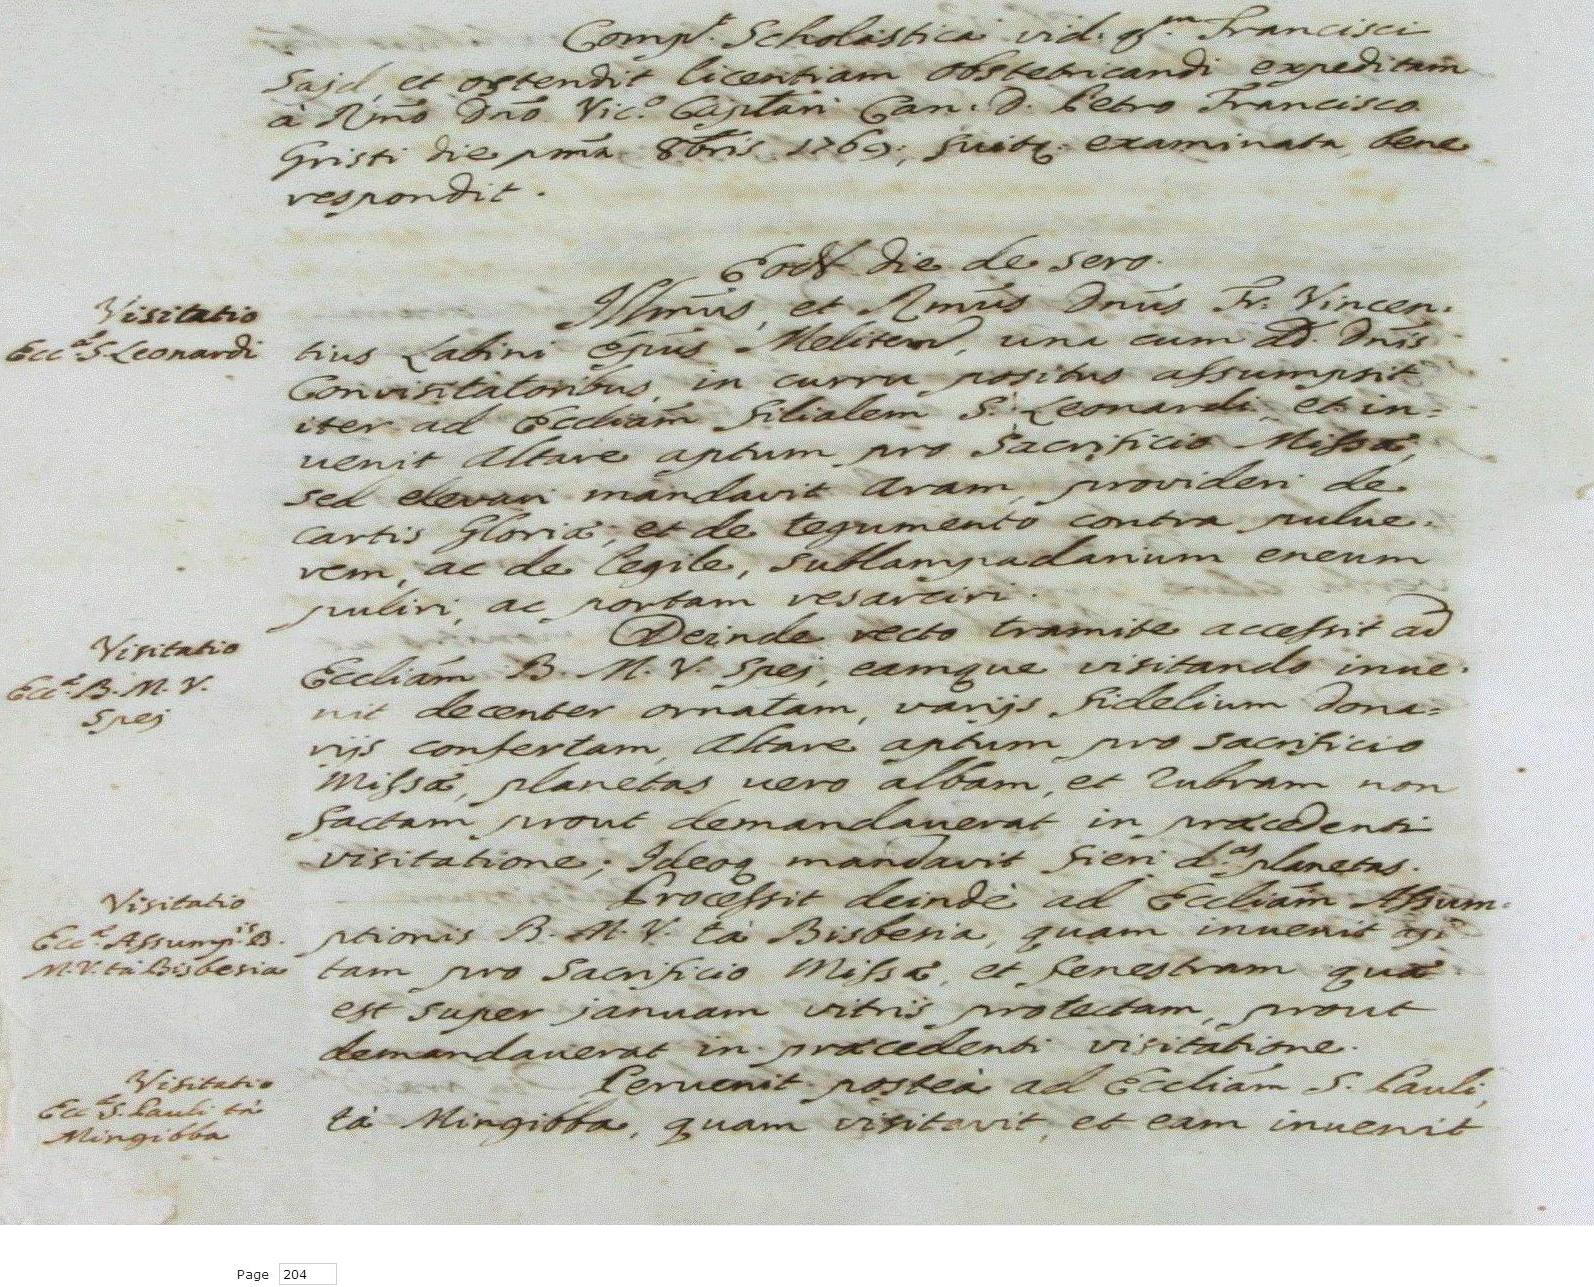 Comp.t Scholastica vid. q.m Francisci
Sajd, et ostendit licentiam obstetricandi expeditam
à Rmo Dno Vic.o Caplari Can. D. Petro Francisco
Gristi die pma 8bris 1769; fuitq. examinata, bene
respondit.
Eod die de sero.
Visitatio
Ecc.æ S Leonardi
Illmus, et Rmus Dnus Fr. Vincen-
tius Labini Epus Meliten, una cum DD. Dnis
Convisitatoribus, in curru positus assumpsit
iter ad Ecclìam filialem S. Leonardi, et in-
uenit Altare aptum pro Sacrificio Missæ,
sed elevari mandavit Aram, provideri de
cartis Gloriæ, et de tegumento contra pulue-
rem, ac de legile, sublampadarium eneum
puliri, ac portam resarciri.
Visitatio
Ecc.æ B. M. V.
Spej
Deinde recto tramite accessit ad
Eccliam B. M. V. Spej, eamque visitando inue-
nit decenter ornatam, varijs fidelium dona-
rijs confertam, Altare aptum pro sacrificio
Missæ, planetas uero albam, et rubram non
factam prout demandauerat in præcedenti
visitatione; Ideoq mandavit fieri d.as planetas.
Visitatio
Ecc.æ Assump.is B.
M. V. tà Bisbesia
Processit deindè ad Eccliam Assum-
ptionis B. M. V. tà Bisbesia, quam inuenit ap-
tam pro Sacrificio Missæ, et fenestram quæ
est super januam vitrijs protectam, prout
demandauerat in præcedenti visitatione.
Visitatio
Ecc.æ S. Pauli tà
Mingibba
Peruenit posteà ad Eccliam S. Pauli,
tà Mingibba, quam visitavit, et eam inuenit
Page 204